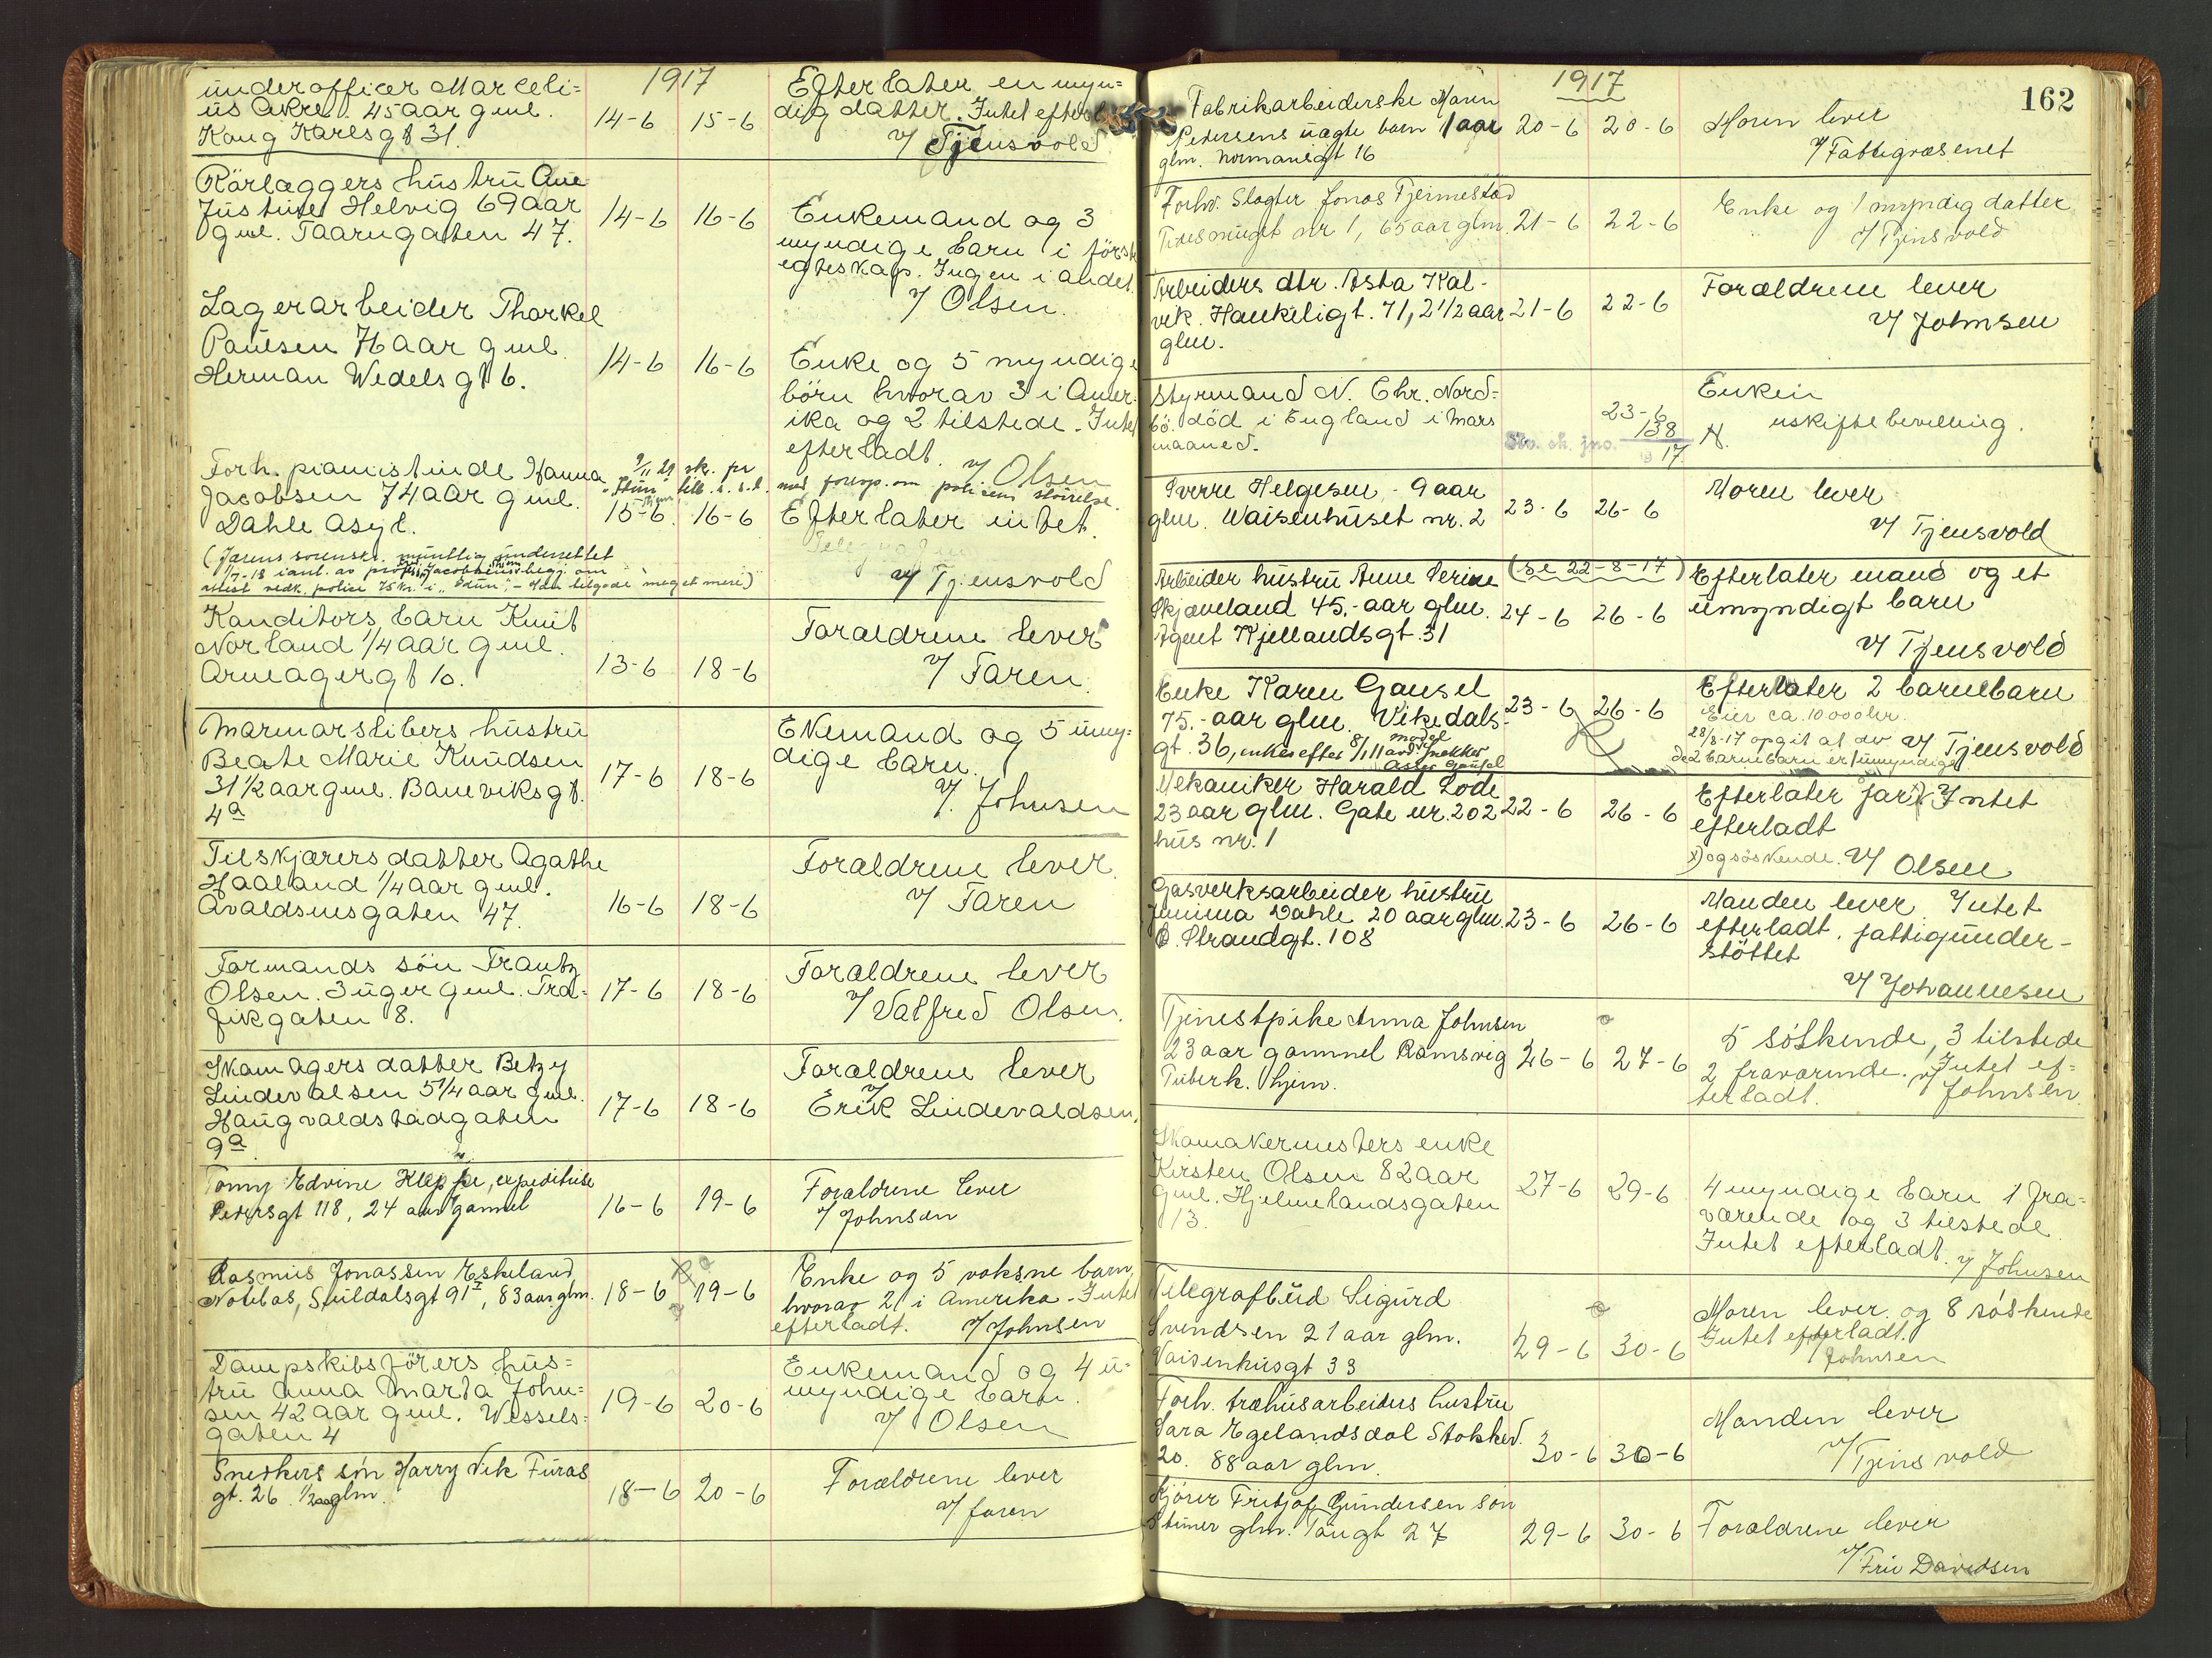 1917
underofficer Marceli=
us Akre. 45 aar gml.
Kong Karlsgt 31.
14-6 15-6
Efterlater en myn=
dig datter. Intet efterl
v/ Tjensvold
Rörlæggers hustru Ane
Justine Helvig 69 aar
gml. Taarngaten 47.
14-6 16-6
Enkemand og 3
myndige barn i först
egteskap. Ingen i andet.
v/ Olsen.
Lagerarbeider Thorkel
Paulsen 71 aar gml.
Herman Wedels gt 6.
14-6 16-6
Enke og 5 myndige
börn hvorav 3 i Amer.
ika og 2 tilstede. Intet
efterladt.
v/ Olsen
Forh. pianistinde Hanna
Jacobsen 74 aar gml.
Dahle Asyl.
9/11 29 sk. pr
med foresp. om polisens störelse.
15-6. 16-6
Efterlater intet.
v/ Tjensvold
(Jærens sorenskr. muntlig underrettet
Kanditors barn Knut
Norland 1/4 aar gml.
Arneagergt 10.
13-6 18-6
Forældrene lever
v/ Faren.
Marmorslibers hustru
Beate Marie Knudsen
31 1/2 aar gml. Baneviksgt.
4a
17-6 18-6
Ekemand og 5 umyn=
dige barn.
v/. Johnsen
Tilskjærers datter Agathe
Haaland 1/4 aar gml.
Avaldsnesgaten 47.
16-6 18-6
Forældrene lever.
v/ Faren
Formands sön Frantz
Olsen. 3 uger gml. Tra=
fikgaten 8.
17-6 18-6
Forældrene lever
v/ Valfred Olsen.
Skomagers datter Betzy
Lindevalsen 5 1/4 aar gml.
Haugvaldstadgaten
9a
17-6 18-6
Forældrene lever
v/
Erik Lindevaldsen.
Tonny Edvine Kleppe, expeditrise
Pedersgt 118, 24 aar gammel
16-6 19-6
Forældrene lever
v/ Johnsen
Rasmus Jonassen Eskeland
Notebas, Suldalsgt 91 I, 83 aar glm.
18-6 19-6
Enke og 5 voksne barn,
hvorav 2 i Amerika. Intet
efterladt. v/ Johnsen
Dampskibsförers hus=
tru Anna Marta John=
sen 42 aar gml. Wessels=
gaten 4
19-6 20-6
Enkemand og 4 u=
myndige barn.
v/ Olsen
Snedkers sön Harry Vik Furas
gt. 26 1/2 aar glm.
18-6 20-6
Forældrene lever
v/ faren
1917
162
Fabrikarbeiderske Maren
Pedersens uægte barn 1 aar
glm. Normansgt 16
20-6 20-6
Moren lever
v/ Fattigvæsenet
Forhv. Slagter Jonas Tjemestad
nr 1, 65 aar glm.
21-6 22-6
Enke og 1 myndig datter
v/ Tjensvold
Arbeiders dtr. Asta Kal-
vik. Haukeligt. 71, 2 1/2 aar
glm.
21-6 22-6
Forældrene lever
v/ Johnsen
Styrmand N. Chr. Nord=
bö. död i England i mars
maaned.
23-6
138
17
Enken
uskiftebevilling.
N.
Sverre Helgesen, - 9 aar
glm. Waisenhuset nr. 2
23-6 26-6
Moren lever
v/ Tjensvold
Arbeider hustru Anne Serine
Skjæveland 45.-aar glm.
Agent Kjellandsgt. 31
(se 22-8-17)
24-6 26-6
Efterlater mand og et
umyndigt barn
v/ Tjensvold
Enke Karen Gausel
75.-aar glm. Vikedals-
gt. 36, enke efter 8/1 11 avd. model
snekker
Asser Gausel
23-6 26-6
Efterlater 2 barnebarn
Eier ca. 10 000 kr.
28/8-17 opgit at av v/ Tjensvold
de 2 barnebarn er 1 umyndige
Mekaniker Harald Lode
23 aar glm. Gate nr. 202
hus nr. 1
22-6 26-6
Efterlater far x) Intet
efterladt
x) og söskende. v/ Olsen
Gasverksarbeider hustru
Jemima Dahle 20 aar glm.
Ö. Strandgt. 108
23-6 26-6
Manden lever. Intet
efterladt. fattigunder-
stöttet
v/ Johannesen
Tjenestpike Anna Johnsen
23 aar gammel Ramsvig
Tuberk. hjem.
26-6 27-6
5 söskende, 3 tilstede
2 fraværende. Intet ef=
terladt. v/ Johnsen.
Skomakermesters enke
Kirsten Olsen 82 aar
gml. Hjelmelandsgaten
13.
27-6 29-6
4 myndige barn 1 fra=
værende og 3 tilstede.
Intet efterladt.
v/ Johnsen
Telegrafbud Sigurd
Svendsen 21 aar glm.
Vaisenhusgt 33
29-6 30-6
Moren lever og 8 söskende
Intet efterladt.
v/ Johnsen
Forh. træhusarbeiders hustru
Sara Egelandsdal Stokkev.
20. 88 aar glm.
30-6 30-6
Manden lever
v/ Tjensvold
Kjörer Fritjof Gundersen sön
Steiner glm. Taugt 27
29-6 30-6
Forældrene lever
v/ Fru Davidsen